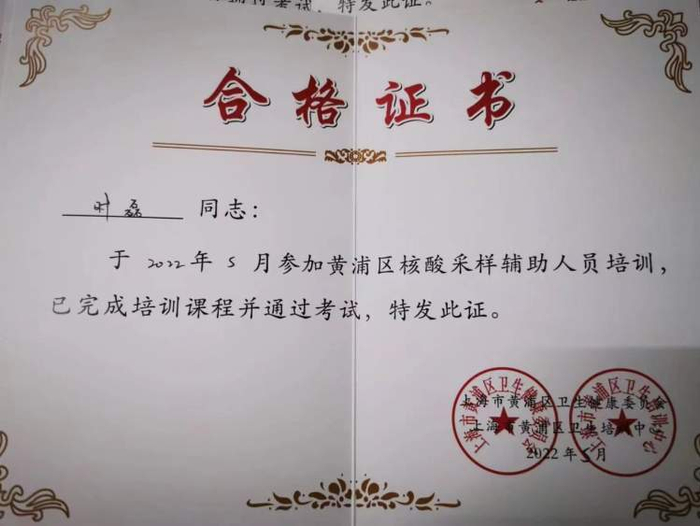 考试，特发此证。
合格证书
叶磊 同志：
于2022年5月参加黄浦区核酸采样辅助人员培训，
已完成培训课程并通过考试，特发此证。
上海市黄浦区卫生健康委员会
上海市黄浦区卫生培训中心
2022年5月
上海市黄浦区卫生健康委员会
上海市黄浦区卫生培训中心